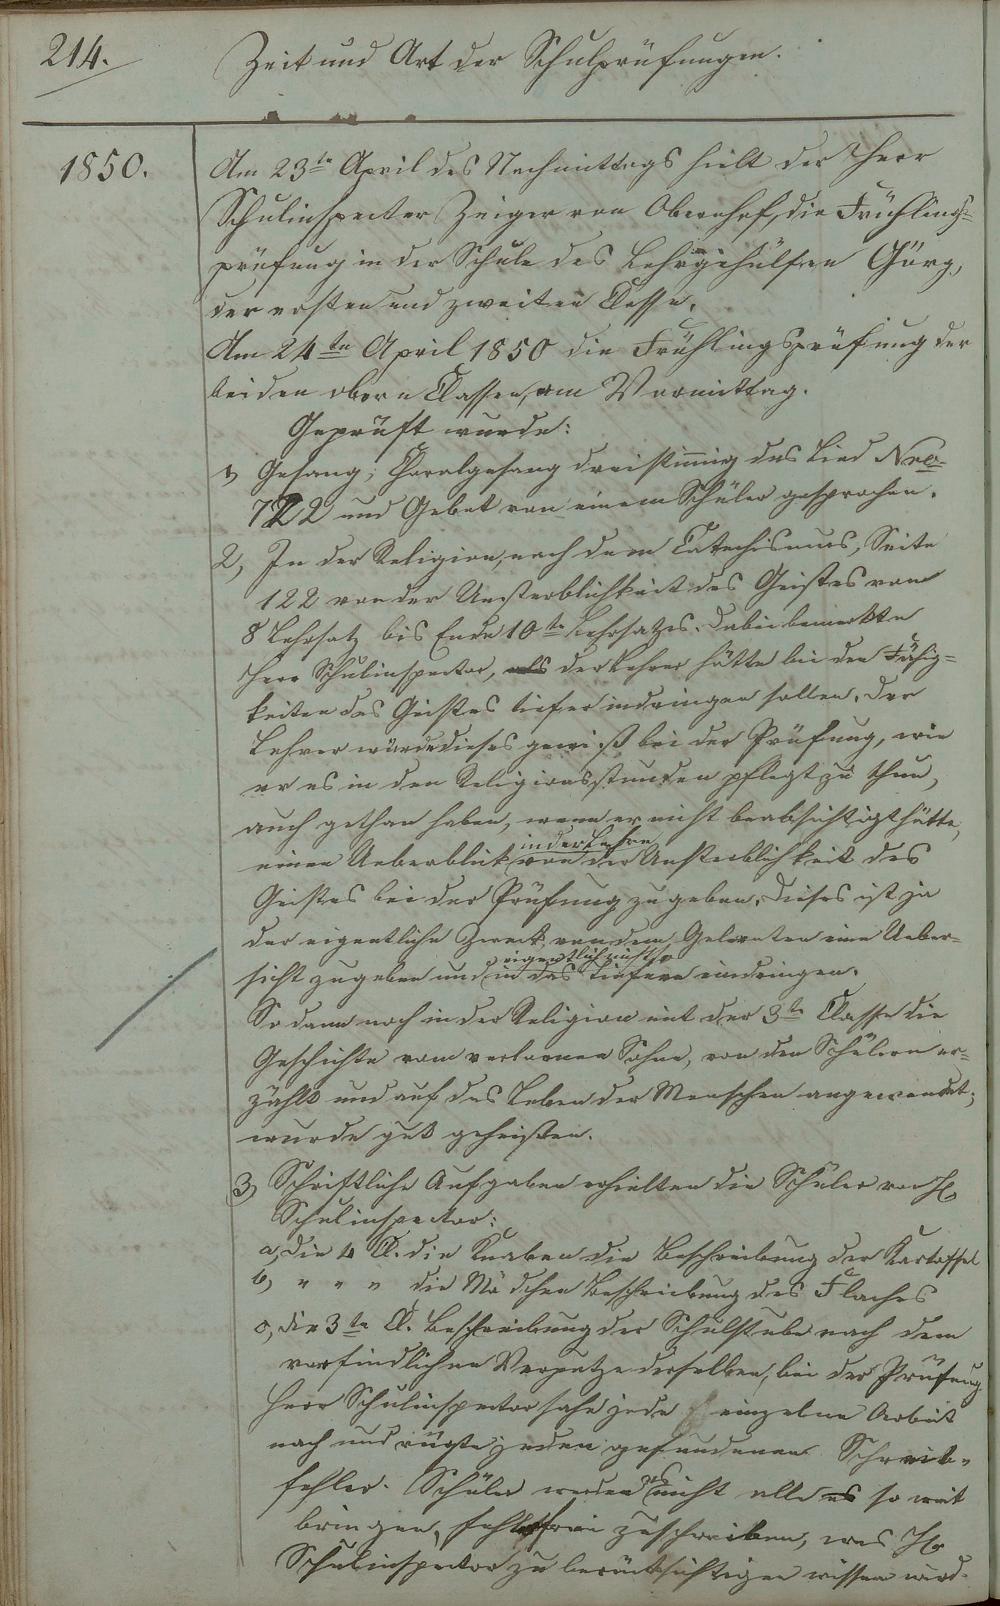 214.
Zeit und Art der Schulprüfungen.
1850.
Am 23ten April des Nachmittags hielt der Herr
Schulinspecter Zeiger von Obernhof, die Frühlings=
prüfung in der Schule des Lehrgehülfen Görg,
der ersten und zweiten Classe.
Am 24ten April 1850 die Frühlingsprüfung der
beiden obern Classen, am Vormittag.
Geprüft wurde:
1) Gesang; Choralgesang dreistimmig das Lied Nro
722 und Gebet von einem Schüler gesprochen.
2, In der Religion, nach dem Catechismus, Seite
122 von der Unsterblichkeit des Geistes vom
8 Lehrsatz bis Ende 10ten Lehrsatzes. Dabei bemerkte
Herr Schulinspector, als der Lehrer hätte bei den Fähig=
keiten des Geistes tiefer indringen sollen. Der
Lehrer würde dieses gewiß bei der Prüfung, wie
er es in den Religionsstunden pflegt zu thun,
auch gethan haben, wenn er nicht beabsichtigt hätte,
in der Lehre
einen Ueberblick von der Unsterblichkeit des
Geistes bei der Prüfung zu geben. Dieses ist ja
der eigentliche Zweck, von dem Gelernten eine Ueber=
eigentlich nicht so
sicht zu geben und in das Tiefere eindringen.
So dann noch in der Religion mit der 3ten Classe die
Geschichte vom verlornen Sohne, von den Schülern er=
zählt und auf das Leben der Menschen angewendet,
wurde gut geheißen.
3) Schriftliche Aufgaben erhielten die Schüler von H.
Schulinspector:
a, die 4 Cl. die Knaben die Beschreibung der Kartoffel
b, " " " die Mädchen Beschreibung des Flachses
c, die 3te Cl. Beschreibung der Schulstube nach dem
vorfindlichen Verputze derselben, bei der Prüfung
Herr Schulinspector sahe jede einzelne Arbeit
nach und rügte jeden gefundenen Schreib=
fehler. Schüler werden es nicht alle es so weit
bringen, fehlerfrei zu schreiben, was H.
Schulinspector zu berücksichtigen wissen wird.